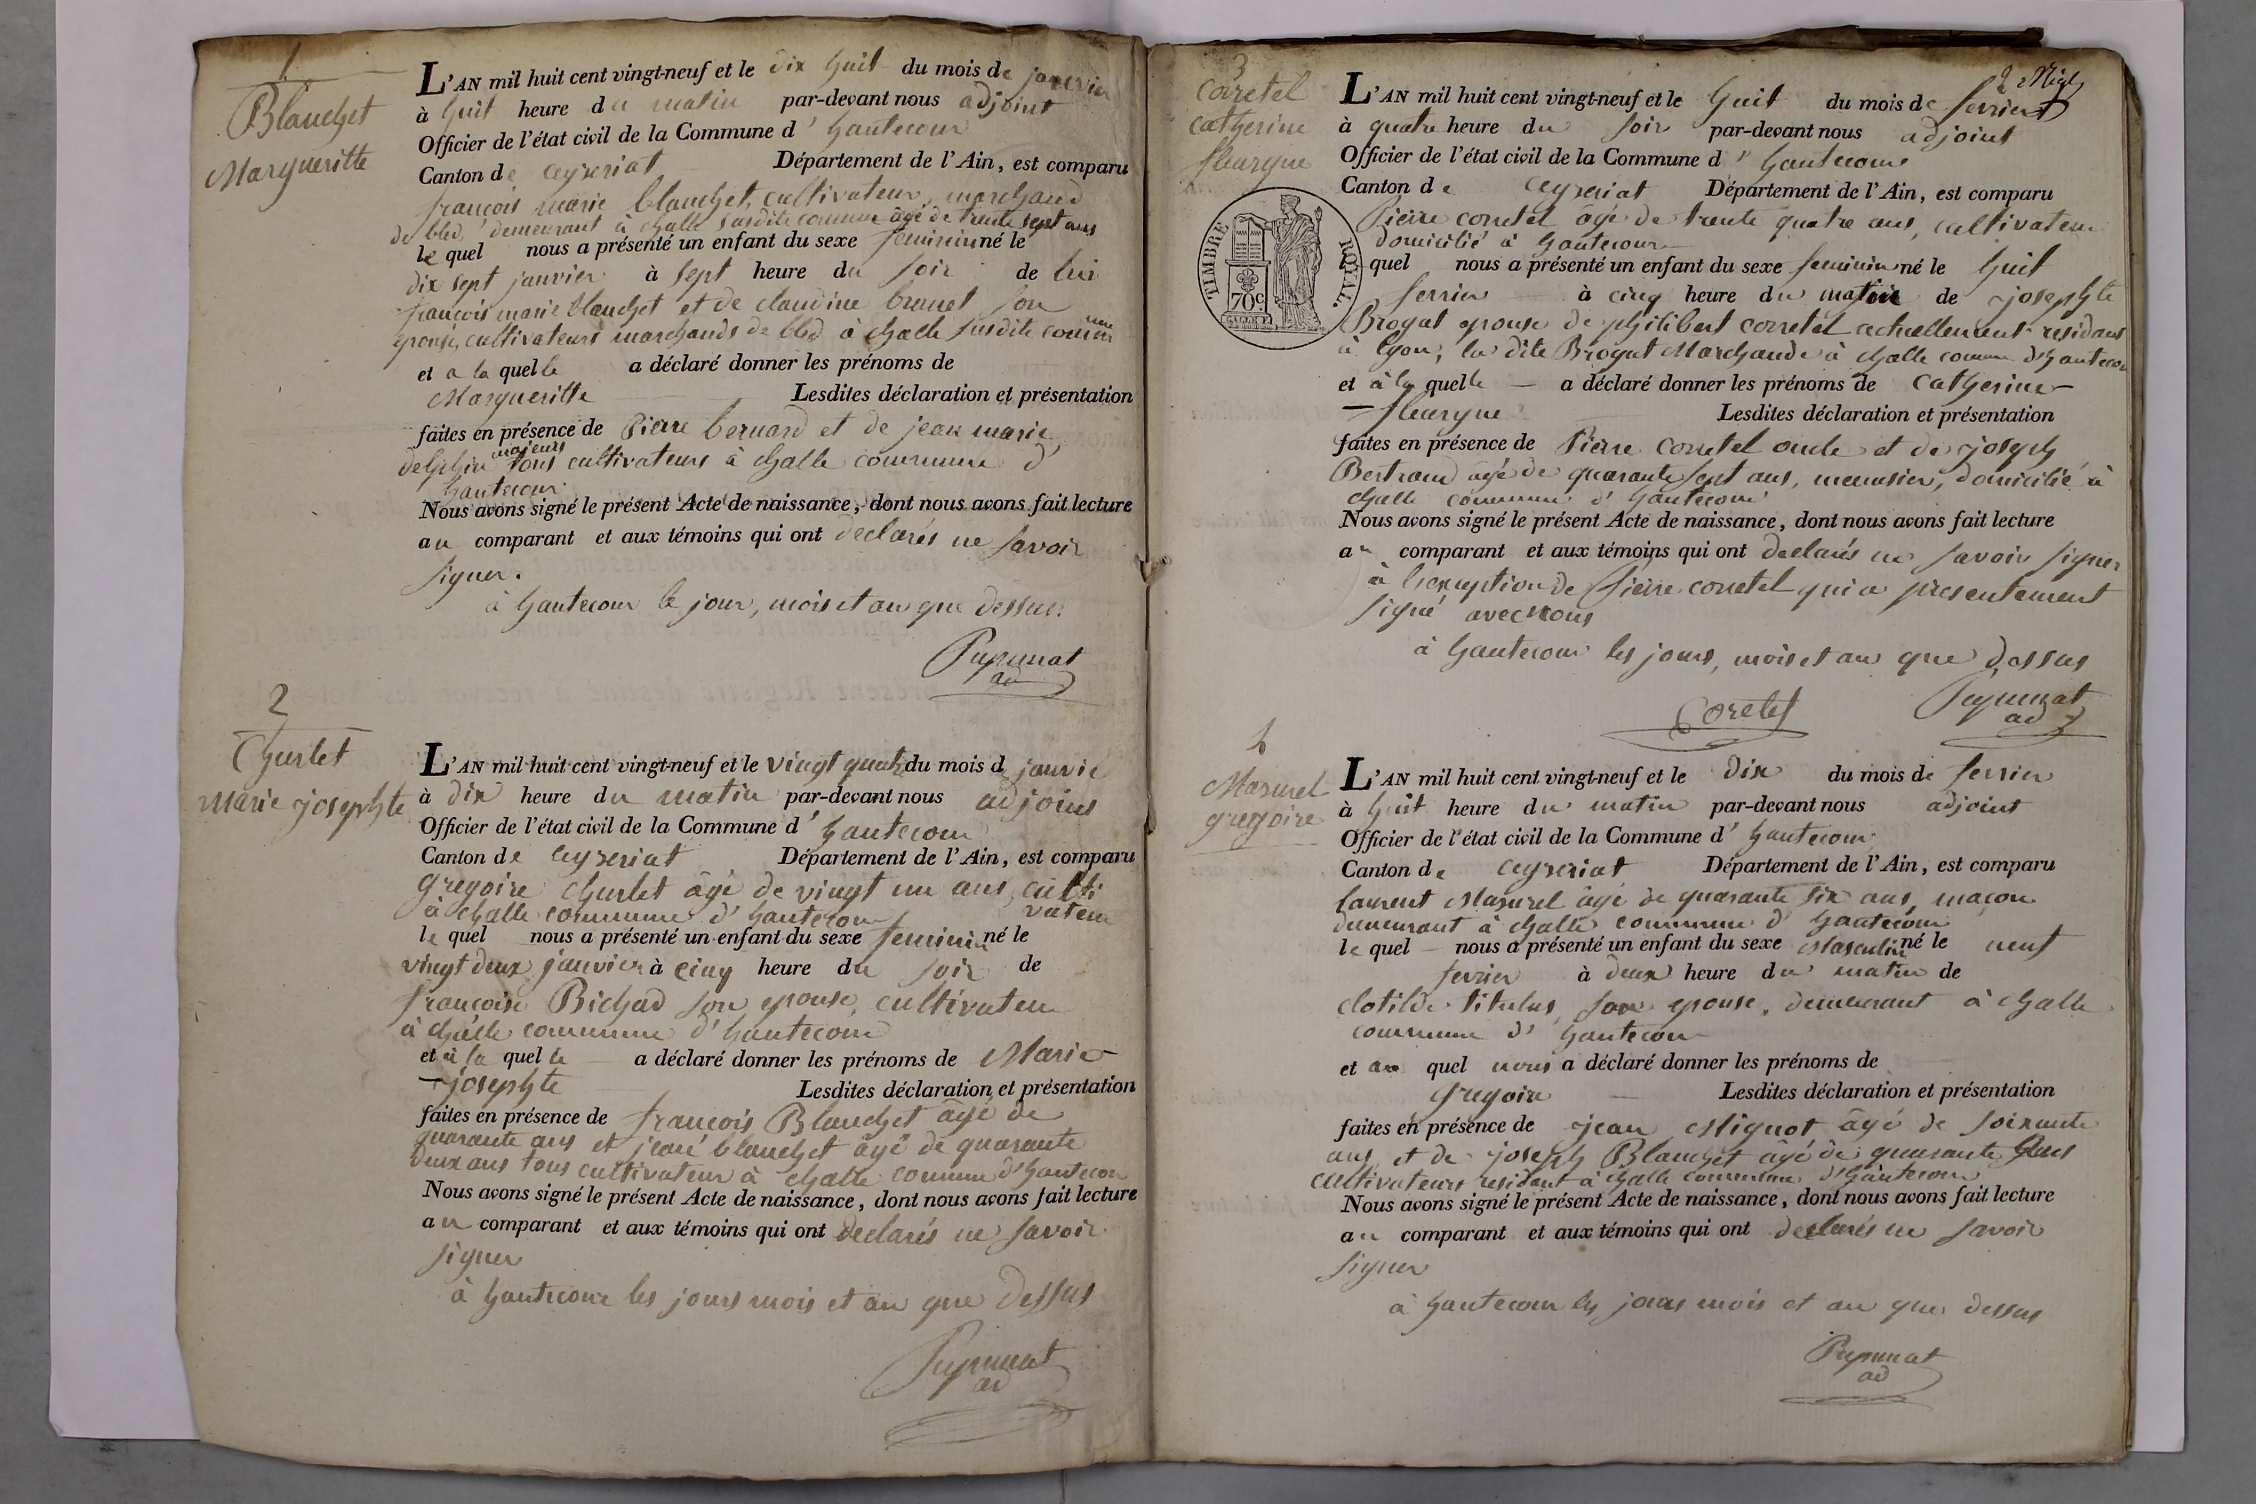 1
Blanchet
Margueritte
L'AN mil huit cent vingt-neuf et le dix huit du mois de janvier
à huit heure du matin par-devant nous adjoint
Officier de l'état civil de la Commune d' hautecour
Canton de ceyzeriat Département de l'Ain, est comparu
françois marie blanchet, cultivateur, marchand
de bled, demeurant à challe susdite commune âgé de trente sept ans
le quel nous a présenté un enfant du sexe feminin né le
dix sept janvier à sept heure du soir de lui
françois marie blanchet et de claudine brunet son
epouse, cultivateurs marchands de bled à challe susdite commune
et a la quelle a déclaré donner les prénoms de
Margueritte Lesdites déclaration et présentation
faites en présence de Pierre bernard et de jean marie
delphin majeurs tous cultivateurs à challe commune d'
hautecour
Nous avons signé le présent Acte de naissance, dont nous avons fait lecture
au comparant et aux témoins qui ont declarés ne savoir
signer.
à hautecour le jour, mois et an que dessus.
Pupunat
ad
2
Churlet
Marie josephte
L'AN mil huit cent vingt-neuf et le vingt quatre du mois d janvie
à dix heure du matin par-devant nous adjoint
Officier de l'état civil de la Commune d' hautecour
Canton de ceyzeriat Département de l'Ain, est comparu
gregoire churlet âgé de vingt un ans, culti
vateur
à challe commune d' hautecour
le quel nous a présenté un enfant du sexe feminin né le
vingt deux janvier à cinq heure du soir de
françoise Bichad son epouse, cultivateur
à challe commune d' hautecour
et à la quelle a déclaré donner les prénoms de Marie
josephte Lesdites déclaration et présentation
faites en présence de françois Blanchet âgé de
quarante ans et jean blanchet âgé de quarante
deux ans tous cultivateur à challe commune d'hautecour
Nous avons signé le présent Acte de naissance, dont nous avons fait lecture
au comparant et aux témoins qui ont declarés ne savoir
signer
à hautecour les jours mois et an que dessus
Pupunat
ad
3
corretel
catherine
fleuryne
TIMBRE ROYAL.
70c
L'AN mil huit cent vingt-neuf et le huit du mois de fevrier
à quatre heure du soir par-devant nous adjoint
Officier de l'état civil de la Commune d' hautecour
Canton de ceyzeriat Département de l'Ain, est comparu
Pierre corretel âgé de trente quatre ans, cultivateur
domicilié à hautecour
quel nous a présenté un enfant du sexe feminin né le huit
fevrier à cinq heure du matin de josephte
Brogat epouse de philibert corretel actuellement residant
à lyon, la dite Brogat Marchande à challe commune d'hautecour
et à la quelle a déclaré donner les prénoms de catherine
fleuryne Lesdites déclaration et présentation
faites en présence de Pierre corretel oncle et de joseph
Bertrand âgé de quarante sept ans, menusier, domicilié à
challe commune d' hautecour
Nous avons signé le présent Acte de naissance, dont nous avons fait lecture
au comparant et aux témoins qui ont declarés ne savoir signer
à l'exeption de Pierre corretel qui a presentement
signé avec nous
à hautecour les jours, mois et an que dessus
Coretel
Pupunat
ad
4
Masurel
gregoire
L'AN mil huit cent vingt-neuf et le dix du mois de fevrier
à huit heure du matin par-devant nous adjoint
Officier de l'état civil de la Commune d' hautecour
Canton de ceyzeriat Département de l'Ain, est comparu
laurent Masurel âgé de quarante six ans, maçon
demeurant à challe commune d' hautecour
le quel nous a présenté un enfant du sexe Masculin né le neuf
fevrier à deux heure du matin de
clotilde titulus, son epouse, demeurant à challe
commune d' hautecour
et au quel nous a déclaré donner les prénoms de
gregoire Lesdites déclaration et présentation
faites en présence de jean Mignot âgé de soixante
ans et de joseph Blanchet âgé de quarante ans
cultivateurs residant à challe commune d'hautecour
Nous avons signé le présent Acte de naissance, dont nous avons fait lecture
au comparant et aux témoins qui ont declarés ne savoir
signer
à hautecour les jours mois et an que dessus
Pupunat
ad